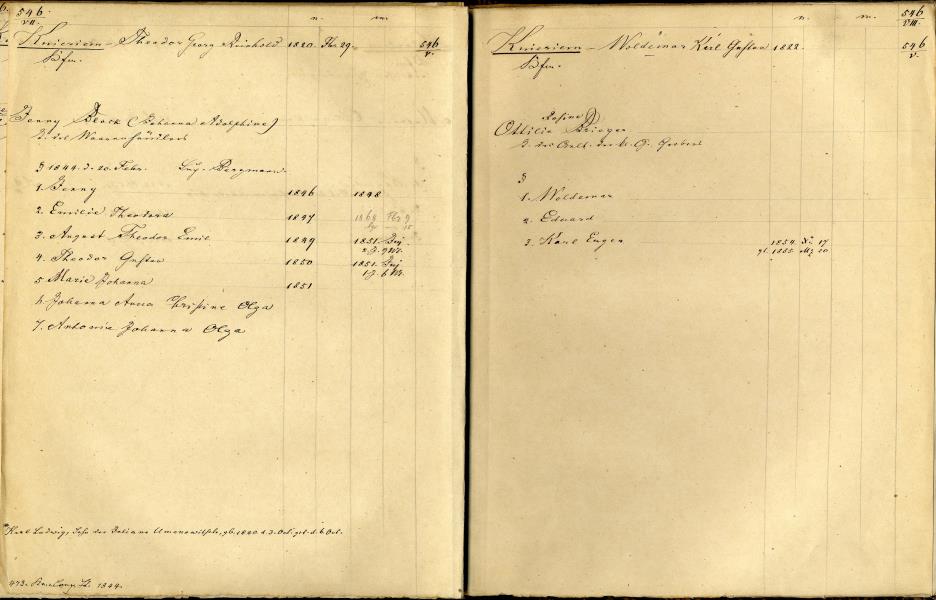 546.
VII.
n. m.
Knieriem – Theodor Georg Reinhold 1820. Fbr 29. 546
V.
Kfm.
Jenny Beack (Johanna Adolphine)
T. des Waarenhändlers
§ 1844. d. 20. Febr. Bergmann
1. Jenny 1846 1848
2. Emilie Theodora 1847
3. August Theodor Emil 1849 1851. Juj.
4. Theodor Gustav 1850 1851. Juj
5. Marie Johanna 1851
6. Johanna Anna Christine Olga
7. Antonie Johanna Olga
Karl Ludwig, Sohn der Juliane d. 3. Oct. get. d. 6. Oct.
473. 1844.
n. m. 546
VIII.
Knieriem – Woldemar Karl Gustav 1822. 546
V.
Kfm.
Rosine
Ottilie Krieger
T. des Aelt. der K. G.
§
1. Woldemar
2. Eduard
3. Karl Eugen 1854. No. 17
1855. Mz 20